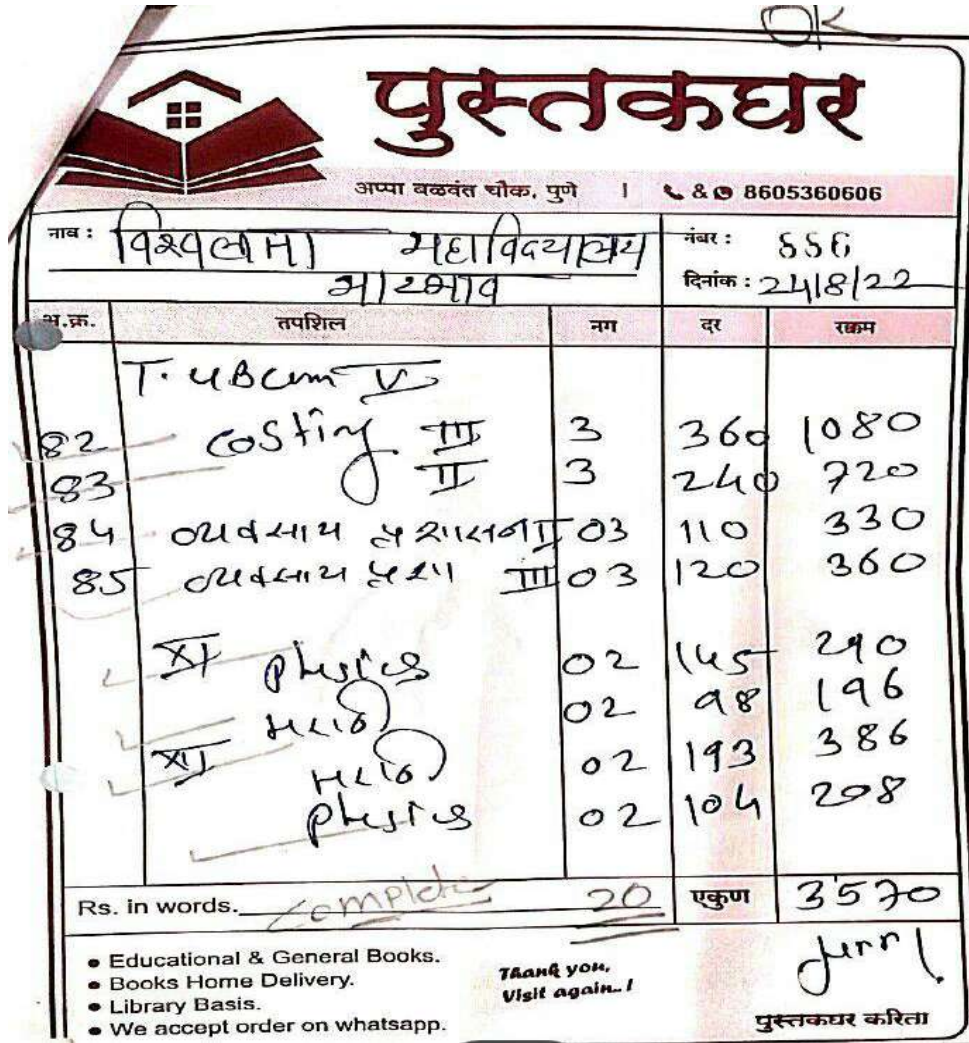 OK
पुस्तकघर
अप्पा बळवंत चौक, पुणे | & 8605360606
नाव : महाविद्यालय नंबर : 556
दिनांक : 24/8/22
अ.क्र. तपशिल नग दर रक्कम
82 costing III 3 360 1080
83 II 3 240 720
84 व्यवसाय प्रशासन II 03 110 330
85 व्यवसाय प्रशा III 03 120 360
XI physics 02 145 290
मराठी 02 98 196
XII मराठी 02 193 386
physics 02 104 208
Rs. in words. complete 20 एकुण 3570
• Educational & General Books.
• Books Home Delivery.
• Library Basis.
• We accept order on whatsapp.
Thank you,
Visit again..!
पुस्तकघर करिता